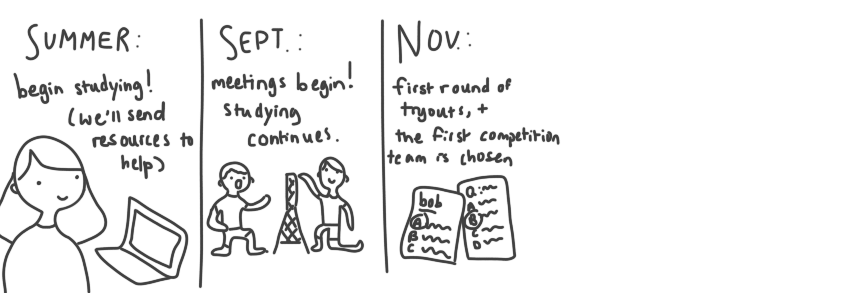 SUMMER:
begin studying!
(we'll send
resources to
help)
SEPT.:
meetings begin!
studying
continues.
NOV.:
first round of
tryouts, +
the first competition
team is chosen
bob
A
B
C
Q:
A
B
C
D